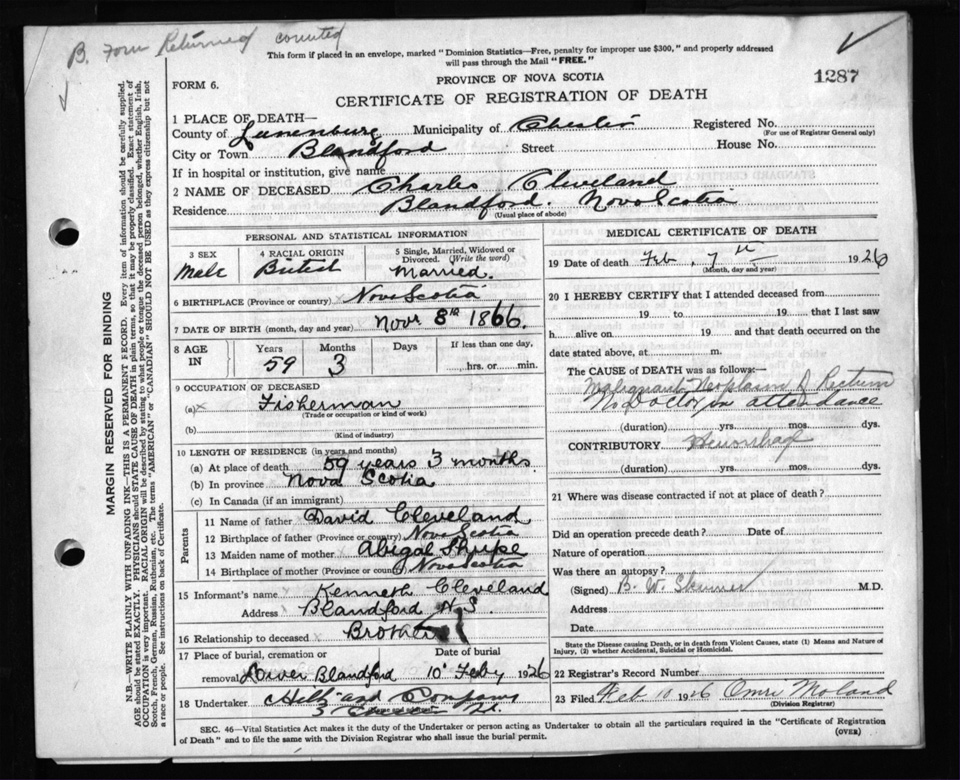 B. Form Returned counted
This form if placed in an envelope, marked "Dominion Statistics—Free, penalty for improper use $300," and properly addressed
will pass through the Mail "FREE."
1287
PROVINCE OF NOVA SCOTIA
FORM 6.
CERTIFICATE OF REGISTRATION OF DEATH
MARGIN RESERVED FOR BINDING
N.B.—WRITE PLAINLY WITH UNFADING INK—THIS IS A PERMANENT RECORD. Every item of information should be carefully supplied.
AGE should be stated EXACTLY. PHYSICIANS should STATE CAUSE OF DEATH in plain terms, so that it may be properly classified. Exact statement of
OCCUPATION is very important. RACIAL ORIGIN will be described by stating to what people or tongue the deceased person belonged, whether English, Irish,
Scotch, French, German, Russian, Ruthenian, etc. The terms "AMERICAN" or "CANADIAN" SHOULD NOT BE USED as they express citizenship but not
a race or people. See instructions on back of Certificate.
1 PLACE OF DEATH—
County of Lunenburg Municipality of Chester Registered No.
(For use of Registrar General only)
City or Town Blandford Street House No.
If in hospital or institution, give name
2 NAME OF DECEASED Charles Cleveland
Residence Blandford. Nova Scotia
(Usual place of abode)
PERSONAL AND STATISTICAL INFORMATION
3 SEX
Male
4 RACIAL ORIGIN
British
5 Single, Married, Widowed or
Divorced. (Write the word)
Married.
6 BIRTHPLACE (Province or country) Nova Scotia
7 DATE OF BIRTH (month, day and year) Novr 8th 1866.
8 AGE IN
Years Months Days If less than one day,
59 3 hrs. or min.
9 OCCUPATION OF DECEASED
(a) x Fisherman
(Trade or occupation or kind of work)
(b)
(Kind of industry)
10 LENGTH OF RESIDENCE (in years and months)
(a) At place of death 59 years 3 months.
(b) In province Nova Scotia
(c) In Canada (if an immigrant)
Parents
11 Name of father David Cleveland
12 Birthplace of father (Province or country) Nova Scotia
13 Maiden name of mother Abigal
14 Birthplace of mother (Province or country) Nova Scotia
15 Informant's name Kenneth Cleveland
Address Blandford N.S.
16 Relationship to deceased x Brother
17 Place of burial, cremation or Date of burial
removal Lower Blandford 10" Feby 1926
18 Undertaker and Company
MEDICAL CERTIFICATE OF DEATH
19 Date of death Feb. 7th 1926
(Month, day and year)
20 I HEREBY CERTIFY that I attended deceased from
19 to 19 that I last saw
h alive on 19 and that death occurred on the
date stated above, at m.
The CAUSE of DEATH was as follows:—
Malignant Neoplasm of Rectum
No Doctor in attendance
(duration) yrs. mos. dys.
CONTRIBUTORY Hemorrhage
(duration) yrs. mos. dys.
21 Where was disease contracted if not at place of death?
Did an operation precede death? Date of
Nature of operation
Was there an autopsy?
(Signed) B. W. Skinner M.D.
Address
Date
State the Disease causing Death, or in death from Violent Causes, state (1) Means and Nature of
Injury, (2) whether Accidental, Suicidal or Homicidal.
22 Registrar's Record Number
23 Filed Feb 10 1926 Omri Moland
(Division Registrar)
SEC. 46—Vital Statistics Act makes it the duty of the Undertaker or person acting as Undertaker to obtain all the particulars required in the "Certificate of Registration
of Death" and to file the same with the Division Registrar who shall issue the burial permit.
(OVER)